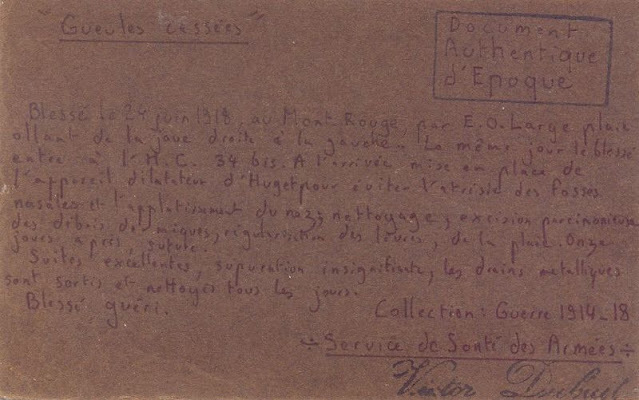 "Gueules cassées"
Document
Authentique
d'Epoque
Blessé le 24 juin 1918, au Mont Rouge, par E.O. Large plaie
allant de la joue droite à la gauche. Le même jour le blessé
entre à l'H.C. 34 bis. A l'arrivée mise en place de
l'appareil dilatateur d'Huget pour éviter l'atrésie des fosses
nasales et l'applatissement du nez; nettoyage, excision parcimonieuse
des débris de muqueuses, régularisation des lèvres, de la plaie. Onze
jours après, suture.
Suites excellentes, supuration insignifiante, les drains metalliques
sont sortis et nettoyés tous les jours.
Blessé guéri.
Collection: Guerre 1914-18
÷ Service de Santé des Armées ÷
Victor